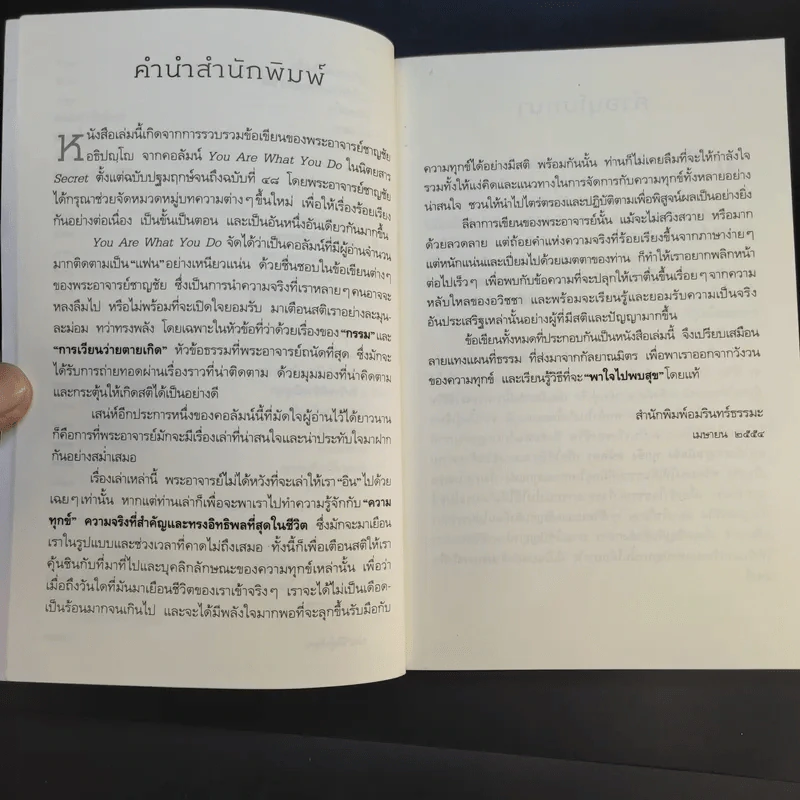 คำนำสำนักพิมพ์
หนังสือเล่มนี้เกิดจากการรวบรวมข้อเขียนของพระอาจารย์ชาญชัย
อธิปญฺโญ จากคอลัมน์ You Are What You Do ในนิตยสาร
Secret ตั้งแต่ฉบับปฐมฤกษ์จนถึงฉบับที่ ๔๘ โดยพระอาจารย์ชาญชัย
ได้กรุณาช่วยจัดหมวดหมู่บทความต่างๆ ขึ้นใหม่ เพื่อให้เรื่องร้อยเรียง
กันอย่างต่อเนื่อง เป็นขั้นเป็นตอน และเป็นอันหนึ่งอันเดียวกันมากขึ้น
You Are What You Do จัดได้ว่าเป็นคอลัมน์ที่มีผู้อ่านจำนวน
มากติดตามเป็น“แฟน”อย่างเหนียวแน่น ด้วยชื่นชอบในข้อเขียนต่างๆ
ของพระอาจารย์ชาญชัย ซึ่งเป็นการนำความจริงที่เราหลายๆ คนอาจจะ
หลงลืมไป หรือไม่พร้อมที่จะเปิดใจยอมรับ มาเตือนสติเราอย่างละมุน-
ละม่อม ทว่าทรงพลัง โดยเฉพาะในหัวข้อที่ว่าด้วยเรื่องของ“กรรม”และ
“การเวียนว่ายตายเกิด” หัวข้อธรรมที่พระอาจารย์ถนัดที่สุด ซึ่งมักจะ
ได้รับการถ่ายทอดผ่านเรื่องราวที่น่าติดตาม ด้วยมุมมองที่น่าคิดตาม
และกระตุ้นให้เกิดสติได้เป็นอย่างดี
เสน่ห์อีกประการหนึ่งของคอลัมน์นี้ที่มัดใจผู้อ่านไว้ได้ยาวนาน
ก็คือการที่พระอาจารย์มักจะมีเรื่องเล่าที่น่าสนใจและน่าประทับใจมาฝาก
กันอย่างสม่ำเสมอ
เรื่องเล่าเหล่านี้ พระอาจารย์ไม่ได้หวังที่จะเล่าให้เรา “อิน” ไปด้วย
เฉยๆ เท่านั้น หากแต่ท่านเล่าก็เพื่อจะพาเราไปทำความรู้จักกับ “ความ
ทุกข์” ความจริงที่สำคัญและทรงอิทธิพลที่สุดในชีวิต ซึ่งมักจะมาเยือน
เราในรูปแบบและช่วงเวลาที่คาดไม่ถึงเสมอ ทั้งนี้ก็เพื่อเตือนสติให้เรา
คุ้นชินกับที่มาที่ไปและบุคลิกลักษณะของความทุกข์เหล่านั้น เพื่อว่า
เมื่อถึงวันใดที่มันมาเยือนชีวิตของเราเข้าจริงๆ เราจะได้ไม่เป็นเดือด-
เป็นร้อนมากจนเกินไป และจะได้มีพลังใจมากพอที่จะลุกขึ้นรับมือกับ
ความทุกข์ได้อย่างมีสติ พร้อมกันนั้น ท่านก็ไม่เคยลืมที่จะให้กำลังใจ
รวมทั้งให้แง่คิดและแนวทางในการจัดการกับความทุกข์ทั้งหลายอย่าง
น่าสนใจ ชวนให้นำไปไตร่ตรองและปฏิบัติตามเพื่อพิสูจน์ผลเป็นอย่างยิ่ง
ลีลาการเขียนของพระอาจารย์นั้น แม้จะไม่สวิงสวาย หรือมาก
ด้วยลวดลาย แต่ถ้อยคำแห่งความจริงที่ร้อยเรียงขึ้นจากภาษาง่ายๆ
แต่หนักแน่นและเปี่ยมไปด้วยเมตตาของท่าน ก็ทำให้เราอยากพลิกหน้า
ต่อไปเร็วๆ เพื่อพบกับข้อความที่จะปลุกให้เราตื่นขึ้นเรื่อยๆ จากความ
หลับใหลของอวิชชา และพร้อมจะเรียนรู้และยอมรับความเป็นจริง
อันประเสริฐเหล่านั้นอย่างผู้ที่มีสติและปัญญามากขึ้น
ข้อเขียนทั้งหมดที่ประกอบกันเป็นหนังสือเล่มนี้ จึงเปรียบเสมือน
ลายแทงแผนที่ธรรม ที่ส่งมาจากกัลยาณมิตร เพื่อพาเราออกจากวังวน
ของความทุกข์ และเรียนรู้วิธีที่จะ “พาใจไปพบสุข” โดยแท้
สำนักพิมพ์อมรินทร์ธรรมะ
เมษายน ๒๕๕๔